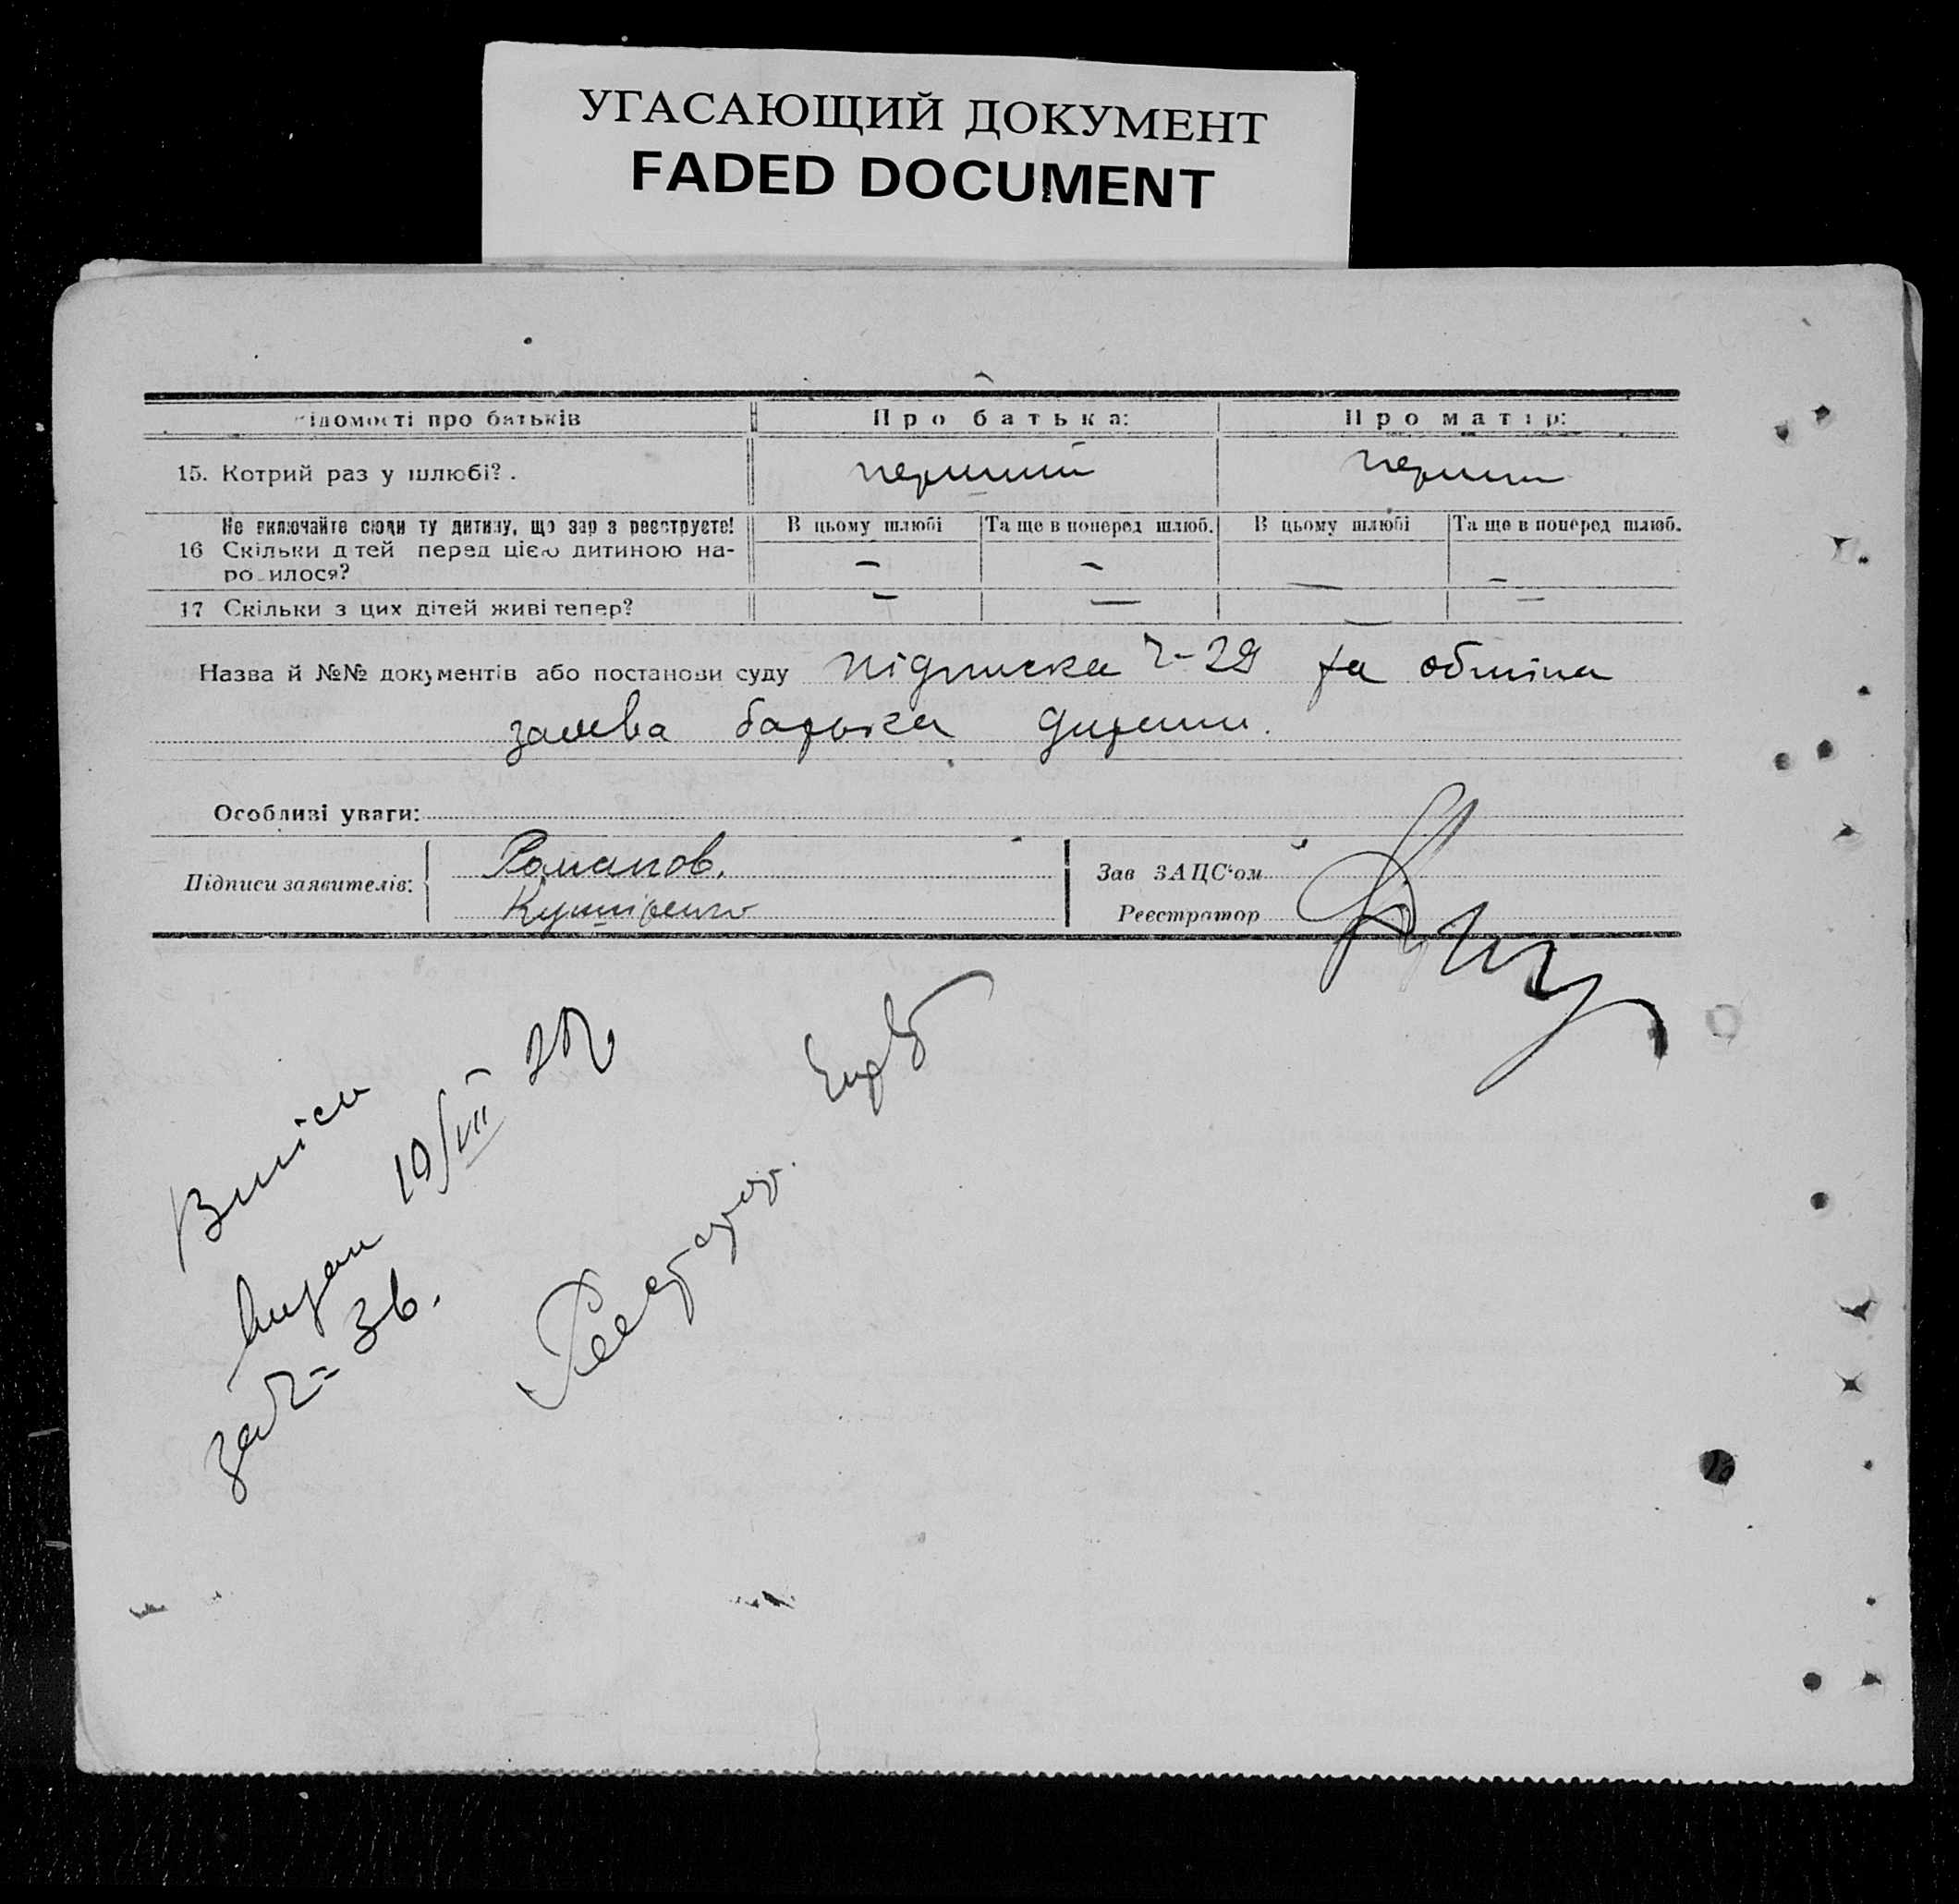 УГАСАЮЩИЙ ДОКУМЕНТ
FADED DOCUMENT
ідомості про батьків
Про батька:
Про матір:
15. Котрий раз у шлюбі?.
перший
перший
Не включайте сюди ту дитину, що зар з реєструєте!
В цьому шлюбі
Та ще в поперед шлюб.
В цьому шлюбі
Та ще в поперед шлюб.
16 Скільки д тей перед цією дитиною на-
ро илося?
— — — —
17 Скільки з цих дітей живі тепер?
— — — —
Назва й №№ документів або постанови суду підписка ч-29 та обміна
заява батька дитини.
Особливі уваги:
Підписи заявителів:
Романов.
Кушніренко
Зав ЗАЦС'ом
Реєстратор
Випіси
видан 19/VII
за ч= 36.
Реєстратор.